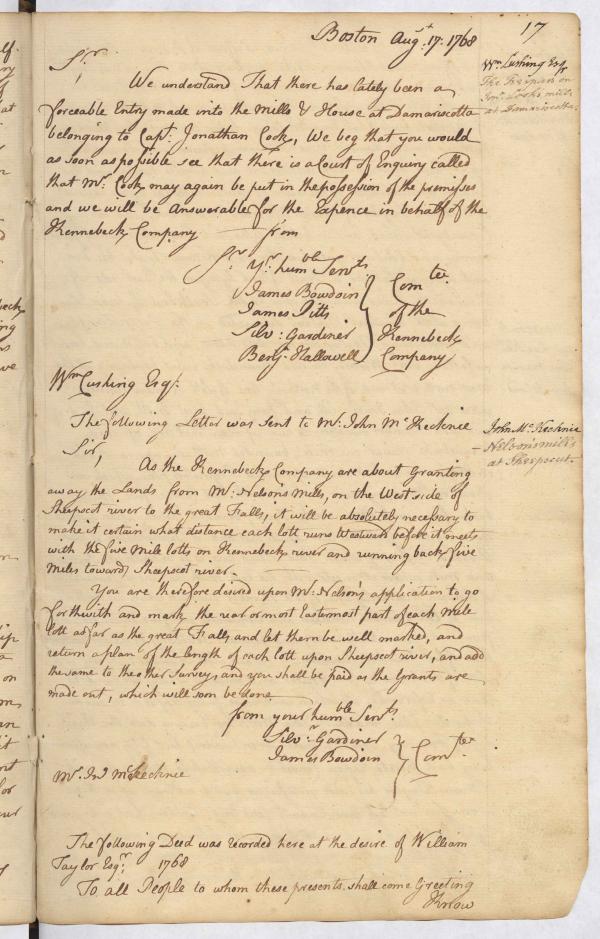 17
Boston Augt. 17. 1768
Sr,
Wm Cushing Esqr
The Trespass on
Jonn. Cooks mills
at Damariscotta
We understand That there has lately been a
forceable Entry made into the Mills & House at Damariscotta
belonging to Capt. Jonathan Cook, We beg that you would
as soon as possible see that there is a Court of Enquiry called
that Mr. Cook may again be put in the possession of the premisses
and we will be Answerable for the Expence in behalf of the
Kennebeck Company from
Sr Yr humble Servts.
James Bowdoin
James Pitts
Silvr. Gardiner
Benj. Hallowell
Comtee.
of the
Kennebeck
Company
Wm Cushing Esqr.
The following Letter was sent to Mr. John McKecknie
John McKecknie
Nelson's mills
at Sheepscut
Sir,
As the Kennebeck Company are about Granting
away the Lands from Mr. Nelson's Mills, on the West side of
Sheepscot river to the great Falls, it will be absolutely necessary to
make it certain what distance each lott runs Westward before it meets
with the five Mile lotts on Kennebeck river and running back five
Miles toward Sheepscot river.
You are therefore desired upon Mr. Nelson's application to go
forthwith and mark the rear or most Eastermost part of each Mile
lott as far as the great Falls and let them be well marked, and
return a plan of the length of each lott upon Sheepscot river, and add
the same to the other Survey, and you shall be paid as the Grants are
made out, which will soon be done
from your humble Servts.
Silvr. Gardiner
James Bowdoin
Comtee
Mr. Jno McKecknie
The following Deed was recorded here at the desire of William
Taylor Esqr. 1768
To all People to whom these presents shall come Greeting
Know